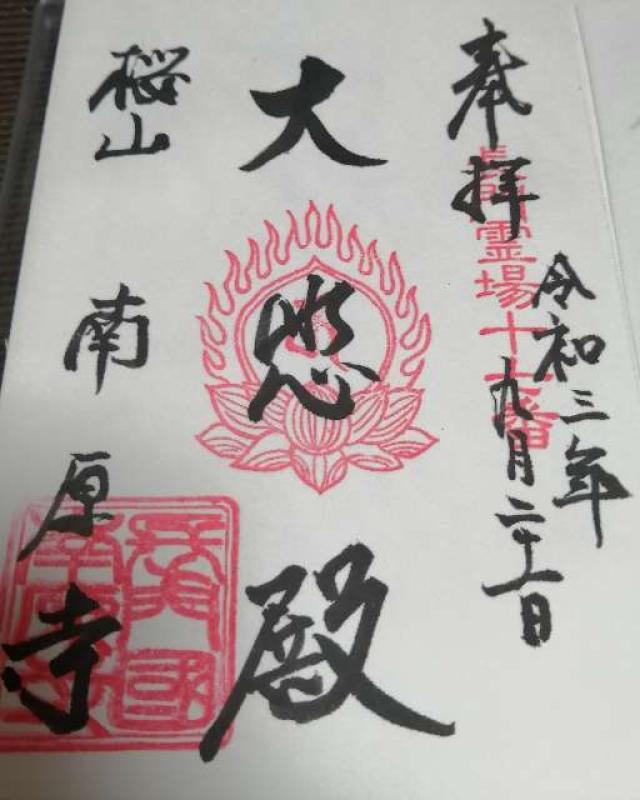 奉拝
霊場十
番
令和三年
九月二十一日
大悲殿
櫻山 南原寺
長門國